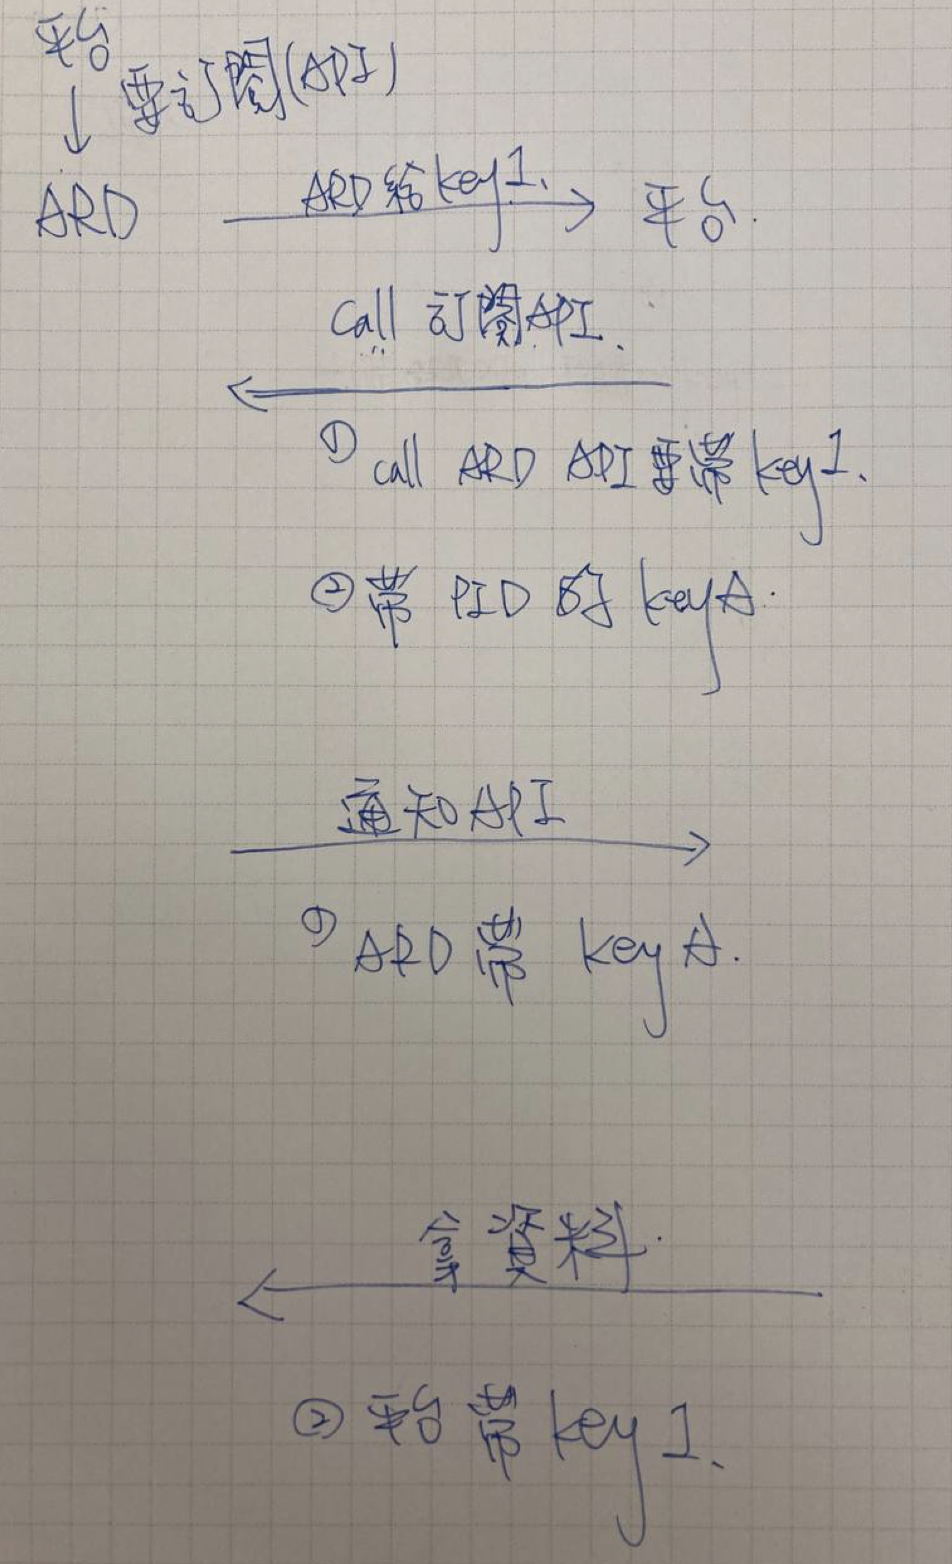 平台
要訂閱(API)
ARD
ARD給key1.
平台.
Call 訂閱API.
① call ARD API要帶key1.
② 帶 PID 的 keyA.
通知API
① ARD帶 keyA.
拿資料.
② 平台帶key1.